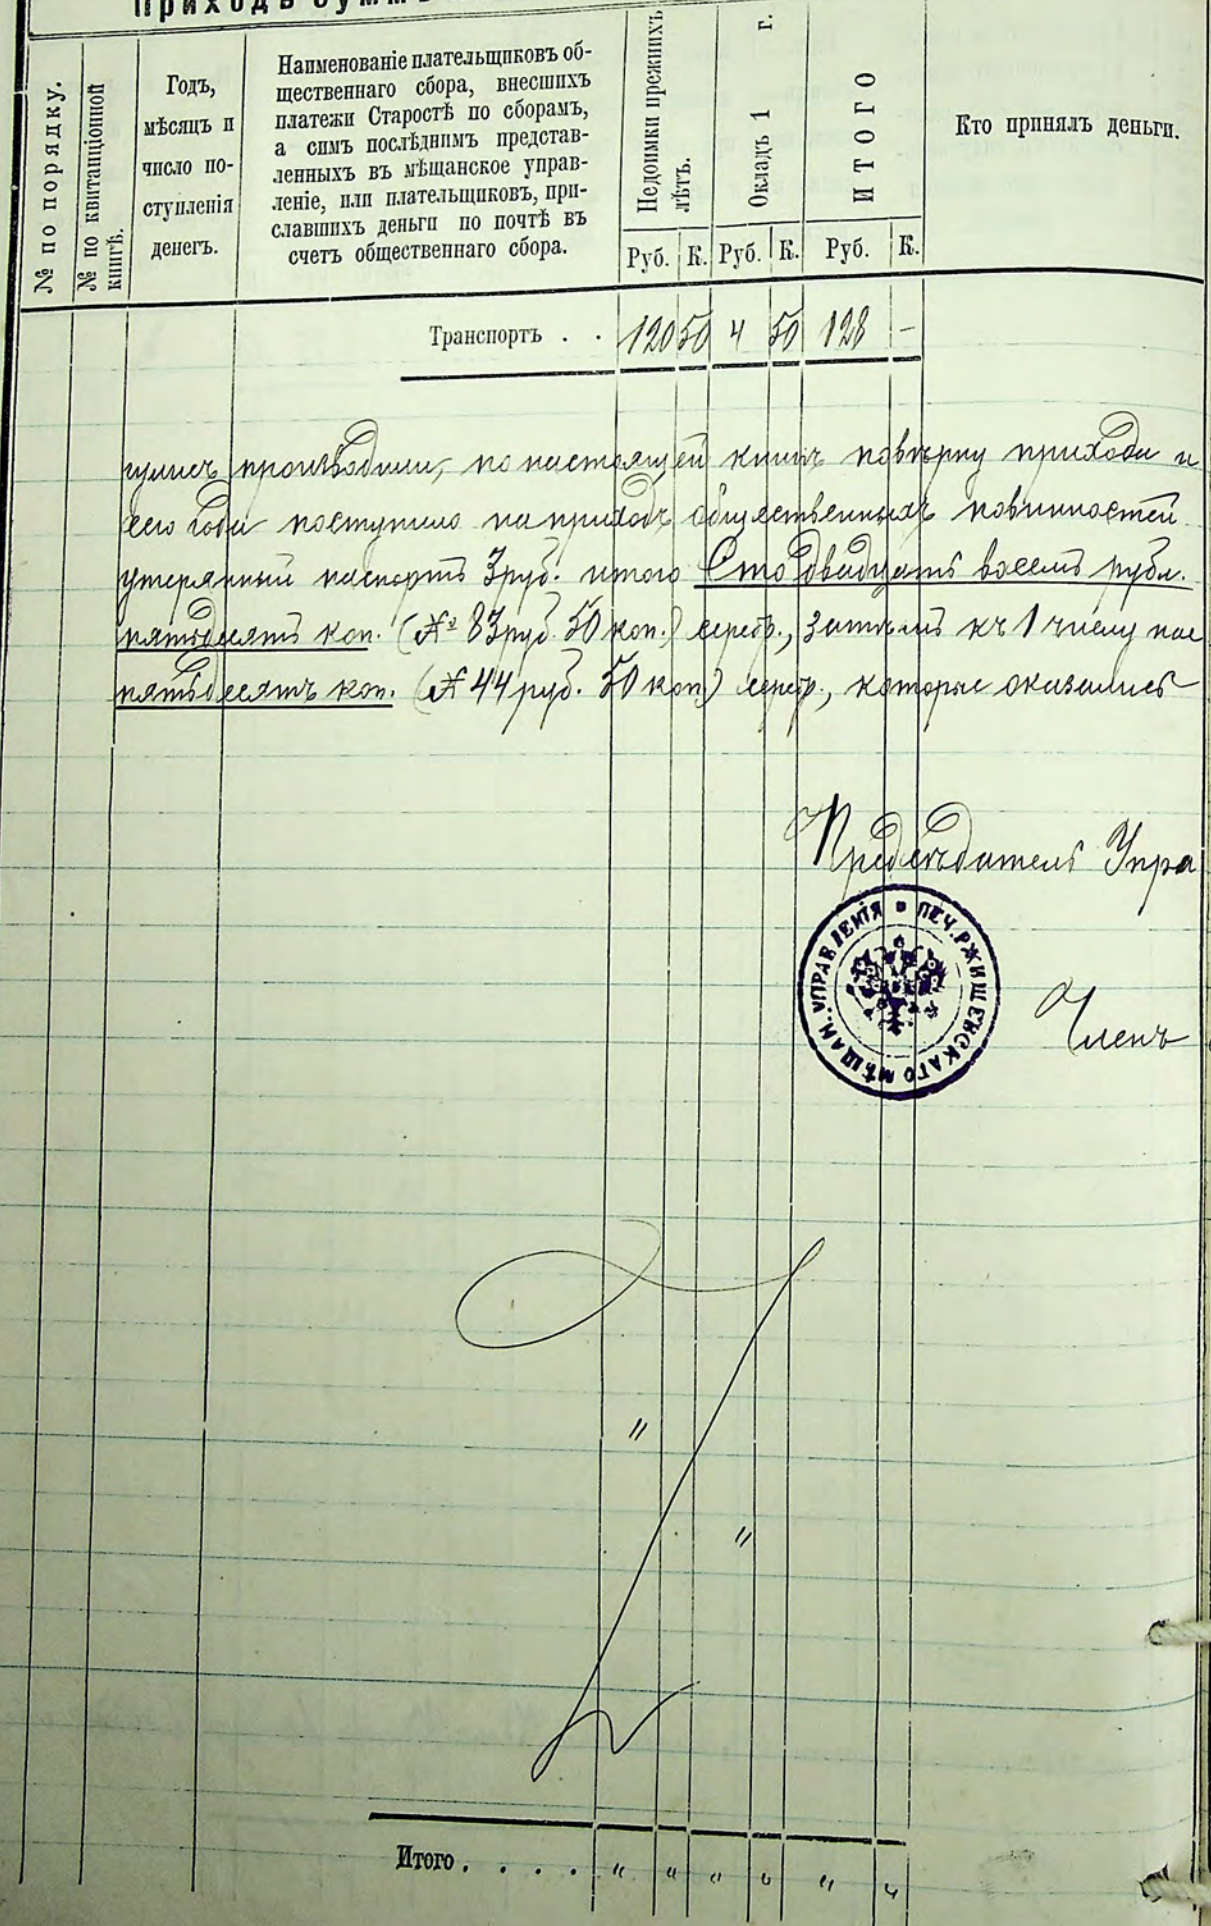 Приходъ сумм
№ по порядку.
№ по квитанціонной
книгѣ.
Годъ,
мѣсяцъ и
число по-
ступленія
денегъ.
Наименованіе плательщиковъ об-
щественнаго сбора, внесшихъ
платежи Старостѣ по сборамъ,
а симъ послѣднимъ представ-
ленныхъ въ мѣщанское управ-
леніе, или плательщиковъ, при-
славшихъ деньги по почтѣ въ
счетъ общественнаго сбора.
Недоимки прежнихъ
лѣтъ.
Окладъ 1 г.
ИТОГО
Кто принялъ деньги.
Руб. К. Руб. К. Руб. К.
Транспортъ . . 120 50 4 50 128 –
производили, по настоящей книгѣ повѣрку прихода и
сего года поступило на приходъ общественныхъ повинностей
утерянный паспортъ 3 руб. итого Сто двадцать восемь рубл.
пятьдесятъ коп. (№ 83 руб. 50 коп.) серебр., затѣмъ къ 1 числу нас
пятьдесятъ коп. (№ 44 руб. 50 коп.) серебр., которые оказались
Предсѣдатель Упра
ПЕЧ. РЖИЩЕВСКАГО МѢЩАН. УПРАВЛЕНІЯ
Членъ
"
"
Итого . . . . " " " " " "